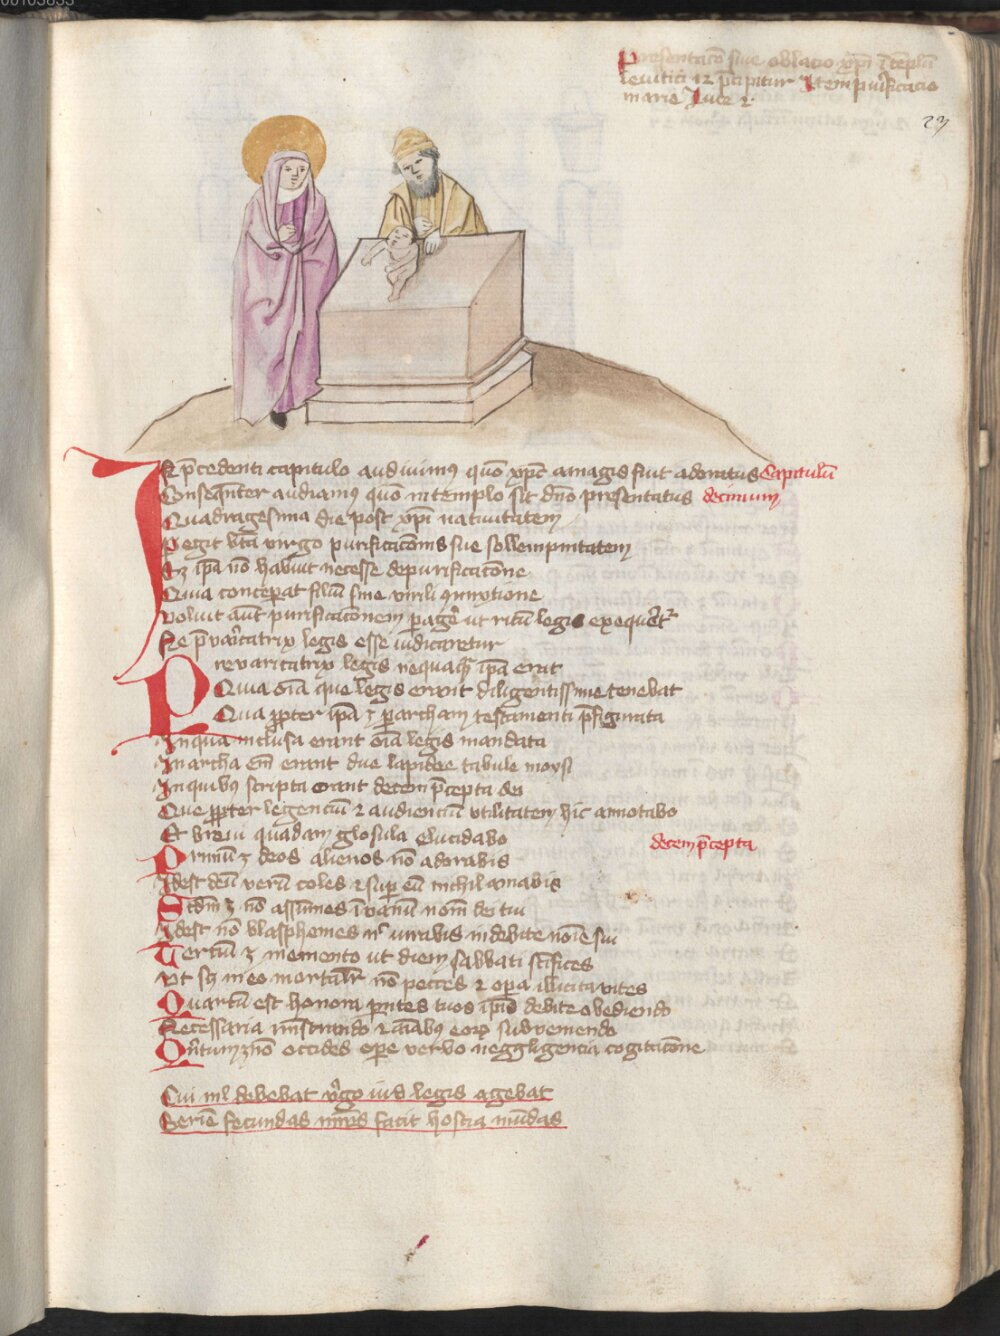 Presentacō siue oblacio xp̄i ī templū
leuitici 12 p̄cipitur Item purificacio
marie Luce 2
23
In p̄cedenti capitulo audiuimꝰ quō xp̄c a magis fuit adoratus Capitulū
Consequēter audiamꝰ quō in templo sit dn̄o presentatus decimum
Quadragesima die post xp̄i natiuitatem
Pegit btā virgo purificacōnis sue sollempnitatem
Et ip̄a nō habuit necesse de purificacōne
Quia conceperat filiū sine virili ꝯmixtione
Voluit aūt purificacōnem pagēͤ ut ritū legis exequeret᷑
Ne p̄uaricatrix legis esse iudicaretur
Preuaricatrix legis nequaqᷓ ip̄a erat
Quia oīa que legis erant diligentissime tenebat
Qua ꝓpter ip̄a ꝫ ꝑ archam testamenti p̄figurata
In qua inclusa erant oīa legis mandata
In archa em̄ erant due lapidee tabule moysi
In quibus scripta erant decem p̄cepta dei
Que ꝓpter legenciū ⁊ audienciū vtilitatem hic annotabo
Et breui quadam glosula elucidabo
Primū ꝫ deos alienos nō adorabis decem p̄cepta
Idest deū verū coles ⁊ suꝑ eū nichil amabis
Scd̄m ꝫ nō assumes ī vanū nom̄ dei tui
Idest nō blasphemes nͨ iurabis indebite noīe sui
Terciū ꝫ memento ut diem sabbati sc̄ifices
Ut sꝫ in eo mortalr̄ nō pecces ⁊ oꝑa illicita vites
Quartū est honora pn̄tes tuos ip̄is debite obediendo
Necessaria mīstrando ⁊ aīabus eoꝝ subveniendo
Qn̄tum ꝫ nō occides oꝑe verbo neggligencia cogitacōne
Cui nil debebat v̄go ius legis agebat
Seriē fecundas mr̄es facit hostia mūdas